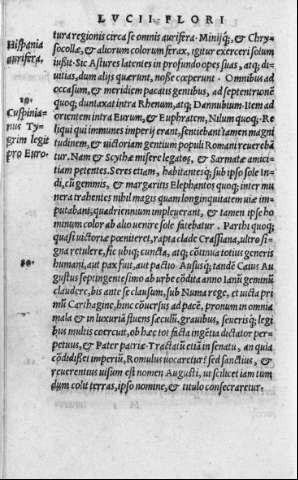 LVCII FLORI
tura regionis circa se omnis aurifera. Minijq́;, & Chry-
socollæ, & aliorum colorum ferax, igitur exerceri solum
iussit. Sic Astures latentes in profundo opes suas, atq; di-
uitias, dum alijs quærunt, nosse cœperunt. Omnibus ad
occasum, & meridiem pacatis gentibus, ad septentrionẽ
quoq; duntaxat intra Rhenum, atq; Dannubium. Item ad
orientem intra Eurum, & Euphratem, Nilum quoq;. Re
liqui qui immunes imperij erant, sentiebant tamen magni
tudinem, & uictoriam gentium populi Romani reuereba
tur. Nam & Scythæ misere legatos, & Sarmatæ amici-
tiam petentes. Seres etiam, habitantesq́; sub ipso sole In-
di, cũ gemmis, & margaritis Elephantos quoq; inter mu
nera trahentes nihil magis quam longinquitatem uiæ im-
putabant, quadriennium impleuerant, & tamen ipse ho
minum color ab alio uenire sole fatebatur. Parthi quoq;
quasi uictoriæ pœniteret, rapta clade Crassiana, ultro si-
gna retulere, sic ubiq; cuncta, atq; cõtinua totius generis
humani, aut pax fuit, aut pactio. Aususq́; tandẽ Cæsar Au
gustus septingentesimo ab urbe cõdita anno Ianũ geminũ
claudere, bis ante se clausum, sub Numa rege, et uicta pri
mũ Carthagine, hinc cõuersus ad pacẽ, pronum in omnia
mala & in luxuriã fluens sæculũ, grauibus, seuerisq́; legi
bus multis coercuit, ob hæc tot facta ingẽtia dictator per
petuus, & Pater patriæ. Tractatũ etiã in senatu, an quia
cõdidisset imperiũ, Romulus uocaretur? sed sanctius, &
reuerentius uisum est nomen Augusti, ut scilicet iam tum
dum colit terras, ipso nomine, & titulo consecraretur.
Hispania
aurifera.
Cuspinia-
nus Ty-
grim legit
pro Euro.